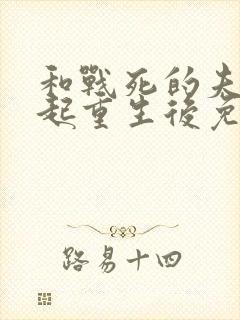 和戰死的夫
起重生後免
路易十四